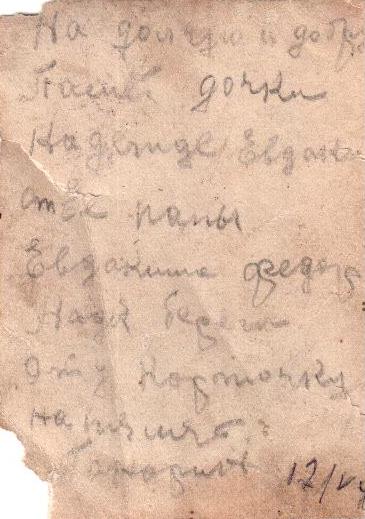 На долгую и добру
Памят дочки
Надежде Евдоки
от папы
Евдакима Федор
Надя береги
эту карточку
на память
12/V